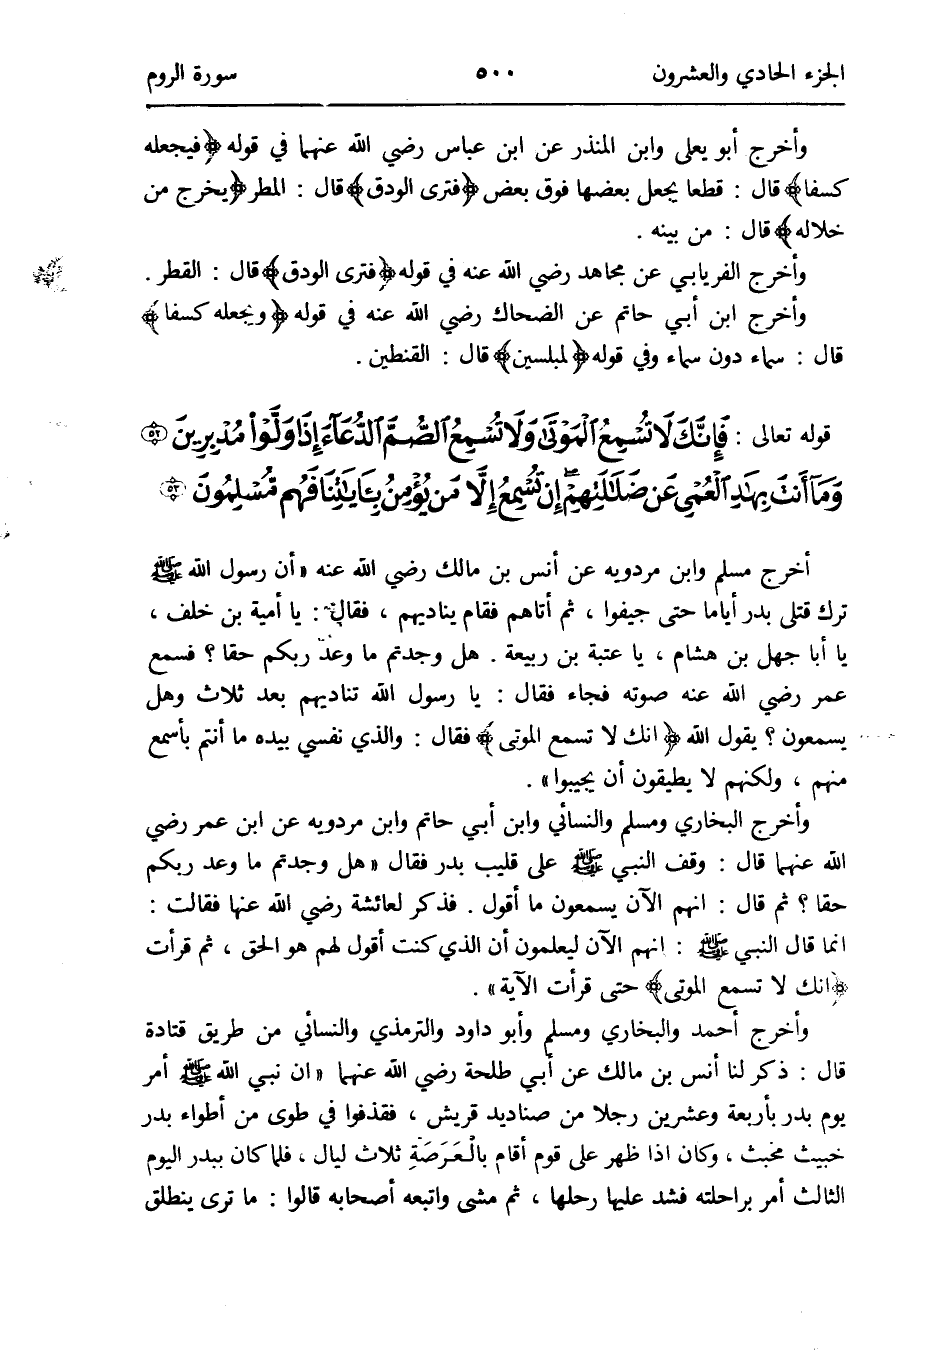 الجزء الحادي والعشرون ٥٠٠ سورة الروم
وأخرج أبو يعلى وابن المنذر عن ابن عباس رضي الله عنهما في قوله ﴿فيجعله
كسفا﴾ قال : قطعا يجعل بعضها فوق بعض ﴿فترى الودق﴾ قال : المطر ﴿يخرج من
خلاله﴾ قال : من بينه .
وأخرج الفريابي عن مجاهد رضي الله عنه في قوله ﴿فترى الودق﴾ قال : القطر .
وأخرج ابن أبي حاتم عن الضحاك رضي الله عنه في قوله ﴿ويجعله كسفا﴾
قال : سماء دون سماء وفي قوله ﴿لمبلسين﴾ قال : القنطين .
قوله تعالى : فَإِنَّكَ لَا تُسْمِعُ ٱلْمَوْتَىٰ وَلَا تُسْمِعُ ٱلصُّمَّ ٱلدُّعَآءَ إِذَا وَلَّوْاْ مُدْبِرِينَ ٥٢
وَمَآ أَنتَ بِهَٰدِ ٱلْعُمْىِ عَن ضَلَٰلَتِهِمْ إِن تُسْمِعُ إِلَّا مَن يُؤْمِنُ بِـَٔايَٰتِنَا فَهُم مُّسْلِمُونَ ٥٣
أخرج مسلم وابن مردويه عن أنس بن مالك رضي الله عنه «أن رسول الله ﷺ
ترك قتلى بدر أياما حتى جيفوا ، ثم أتاهم فقام يناديهم ، فقال : يا أمية بن خلف ،
يا أبا جهل بن هشام ، يا عتبة بن ربيعة . هل وجدتم ما وعد ربكم حقا ؟ فسمع
عمر رضي الله عنه صوته فجاء فقال : يا رسول الله تناديهم بعد ثلاث وهل
يسمعون ؟ يقول الله ﴿انك لا تسمع الموتى﴾ فقال : والذي نفسي بيده ما أنتم بأسمع
منهم ، ولكنهم لا يطيقون أن يجيبوا» .
وأخرج البخاري ومسلم والنسائي وابن أبي حاتم وابن مردويه عن ابن عمر رضي
الله عنهما قال : وقف النبي ﷺ على قليب بدر فقال «هل وجدتم ما وعد ربكم
حقا ؟ ثم قال : انهم الآن يسمعون ما أقول . فذكر لعائشة رضي الله عنها فقالت :
انما قال النبي ﷺ : انهم الآن ليعلمون أن الذي كنت أقول لهم هو الحق ، ثم قرأت
﴿انك لا تسمع الموتى﴾ حتى قرأت الآية» .
وأخرج أحمد والبخاري ومسلم وأبو داود والترمذي والنسائي من طريق قتادة
قال : ذكر لنا أنس بن مالك عن أبي طلحة رضي الله عنهما «ان نبي الله ﷺ أمر
يوم بدر بأربعة وعشرين رجلا من صناديد قريش ، فقذفوا في طوى من أطواء بدر
خبيث مخبث ، وكان اذا ظهر على قوم أقام بالْعَرَصَةِ ثلاث ليال ، فلما كان ببدر اليوم
الثالث أمر براحلته فشد عليها رحلها ، ثم مشى واتبعه أصحابه قالوا : ما ترى ينطلق